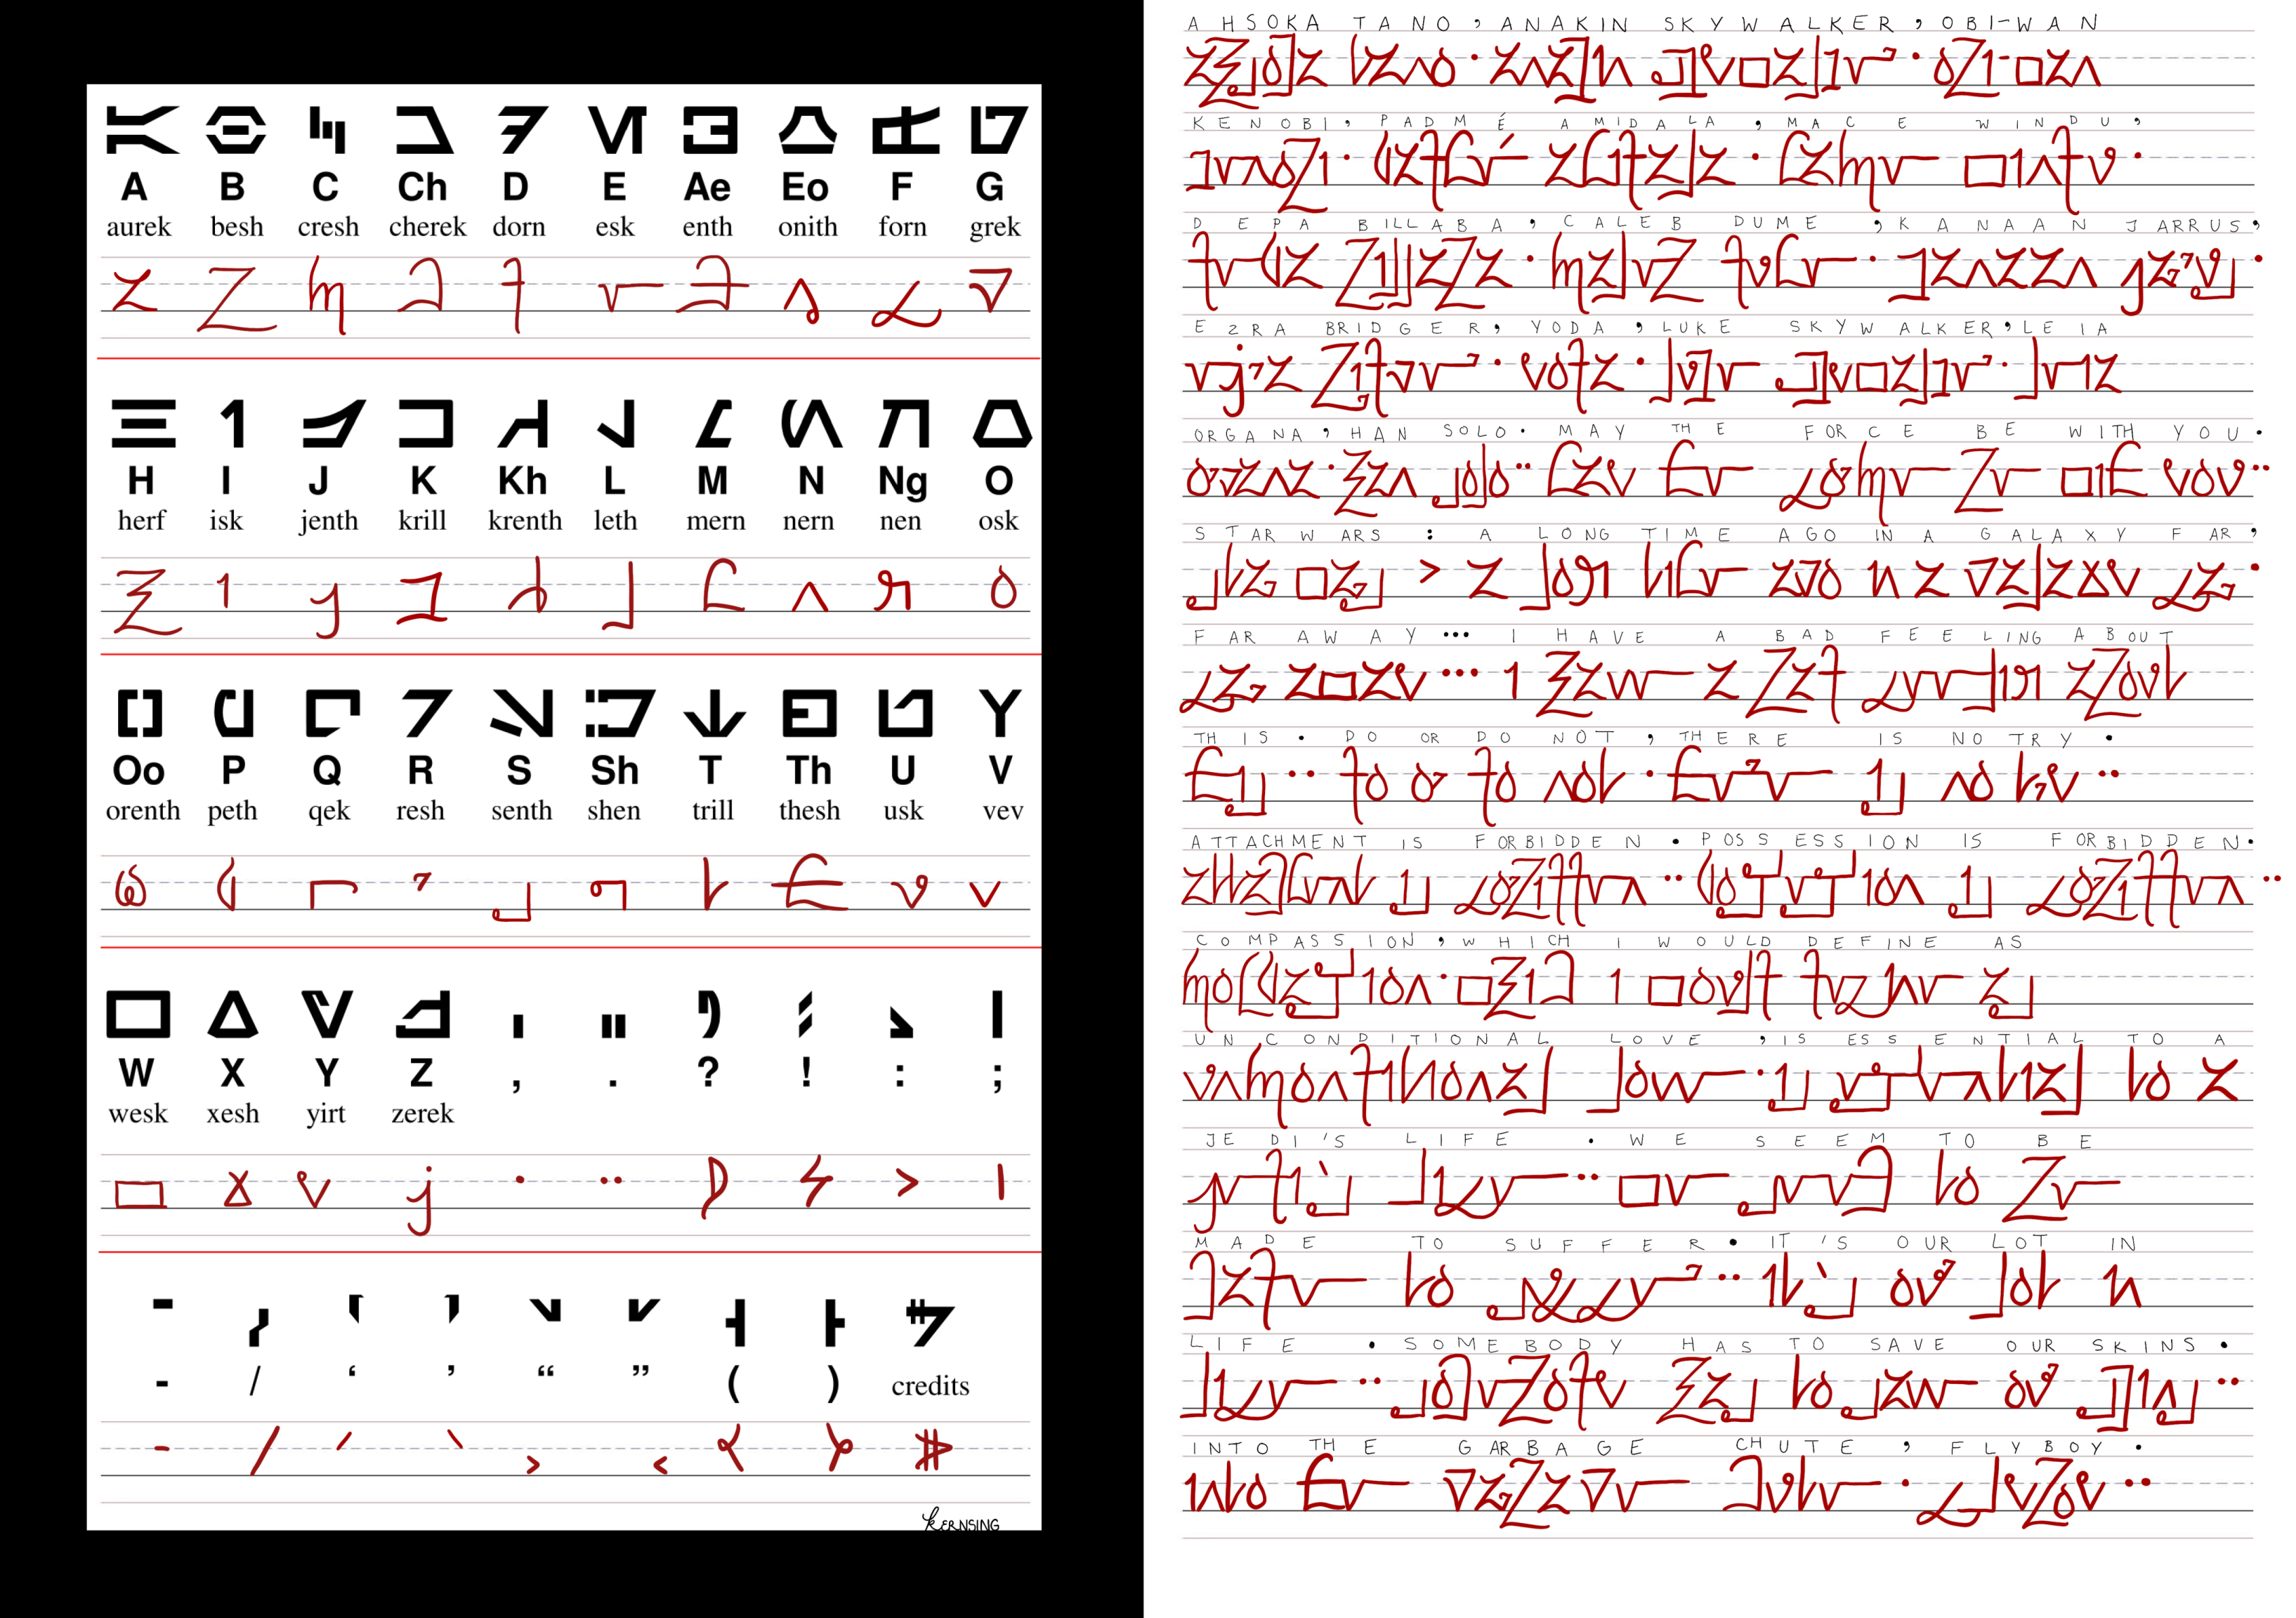 A B C Ch D E Ae Eo F G
aurek besh cresh cherek dorn esk enth onith forn grek
H I J K Kh L M N Ng O
herf isk jenth krill krenth leth mern nern nen osk
Oo P Q R S Sh T Th U V
orenth peth qek resh senth shen trill thesh usk vev
W X Y Z , . ? ! : ;
wesk xesh yirt zerek
- / ‘ ’ “ ” ( ) credits
KERNSING
AHSOKA TANO, ANAKIN SKYWALKER, OBI-WAN
KENOBI, PADMÉ AMIDALA, MACE WINDU,
DEPA BILLABA, CALEB DUME, KANAAN JARRUS,
EZRA BRIDGER, YODA, LUKE SKYWALKER, LEIA
ORGANA, HAN SOLO. MAY THE FORCE BE WITH YOU.
STAR WARS : A LONG TIME AGO IN A GALAXY FAR,
FAR AWAY... I HAVE A BAD FEELING ABOUT
THIS. DO OR DO NOT, THERE IS NO TRY.
ATTACHMENT IS FORBIDDEN. POSSESSION IS FORBIDDEN.
COMPASSION, WHICH I WOULD DEFINE AS
UNCONDITIONAL LOVE, IS ESSENTIAL TO A
JEDI'S LIFE. WE SEEM TO BE
MADE TO SUFFER. IT'S OUR LOT IN
LIFE. SOMEBODY HAS TO SAVE OUR SKINS.
INTO THE GARBAGE CHUTE, FLYBOY.